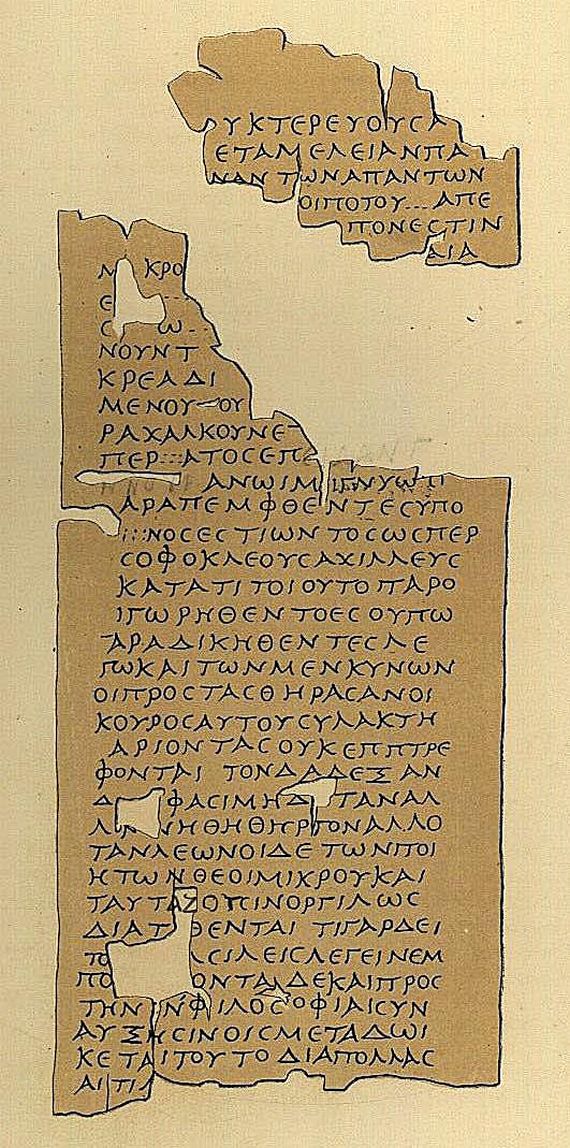 ΡΥΚΤΕΡΕΥΟΥϹΑ
ΕΤΑΜΕΛΕΙΑΝΠΑ
ΝΑΝΤΩΝΑΠΑΝΤΩΝ
ΟΙΠΟΤΟΥ...ΑΠΕ
ΠΟΝΕϹΤΙΝ
ΑΙΑ
Μ ΚΡΟ
Ε
Ϲ Ω
ΝΟΥΝΤ
ΚΡΕΑΔΙ
ΜΕΝΟΥ ΟΥ
ΡΑΧΑΛΚΟΥΝΕΤ
ΠΕΡ ΑΤΟϹΕΠ
ΑΝΩΙΜ
ΑΡΑΠΕΜΦΘΕΝΤΕϹΥΠΟ
ΝΟϹΕϹΤΙΩΝΤΟϹΩϹΠΕΡ
ϹΟΦΟΚΛΕΟΥϹΑΧΙΛΛΕΥϹ
ΚΑΤΑΤΙΤΟΙΟΥΤΟΠΑΡΟ
ΙΓΩΡΗΘΕΝΤΟΕϹΟΥΠΩ
ΤΑΡΑΔΙΚΗΘΕΝΤΕϹΛΕ
ΓΩΚΑΙΤΩΝΜΕΝΚΥΝΩΝ
ΟΙΠΡΟϹΤΑϹΘΗΡΑϹΑΝΟΙ
ΚΟΥΡΟϹΑΥΤΟΥϹΥΛΑΚΤΗ
ΑΡΙΟΝΤΑϹΟΥΚΕΠΠΤΡΕ
ΦΟΝΤΑΙ ΤΟΝΔΑΔΕΞΑΝ
Δ ΦΑϹΙΜΗΔ ΤΑΝΑΛ
ΛΩΝ ΗΘΗΘΗΡΙΟΝΑΛΛΟ
ΤΑΝΛΕΩΝΟΙΔΕΤΩΝΠΟΙ
ΗΤΩΝΘΕΟΙΜΙΚΡΟΥΚΑΙ
ΤΑΥΤΑΖΟΥϹΙΝΟΡΓΙΛΩϹ
ΔΙΑΤ ΘΕΝΤΑΙ ΤΙΓΑΡΔΕΙ
ΤΟ ΛϹΙΛΕΙϹΛΕΓΕΙΝΕΜ
ΠΟ ΟΝΤΑΙΔΕΚΑΙΠΡΟϹ
ΤΗΝ ΝΦΙΛΟϹΟΦΙΑΙϹΥΝ
ΑΥΞΗϹΙΝΟΙϹΜΕΤΑΔΩΙ
ΚΕΤΑΙΤΟΥΤΟΔΙΑΠΟΛΛΑϹ
ΑΙΤΙΑ